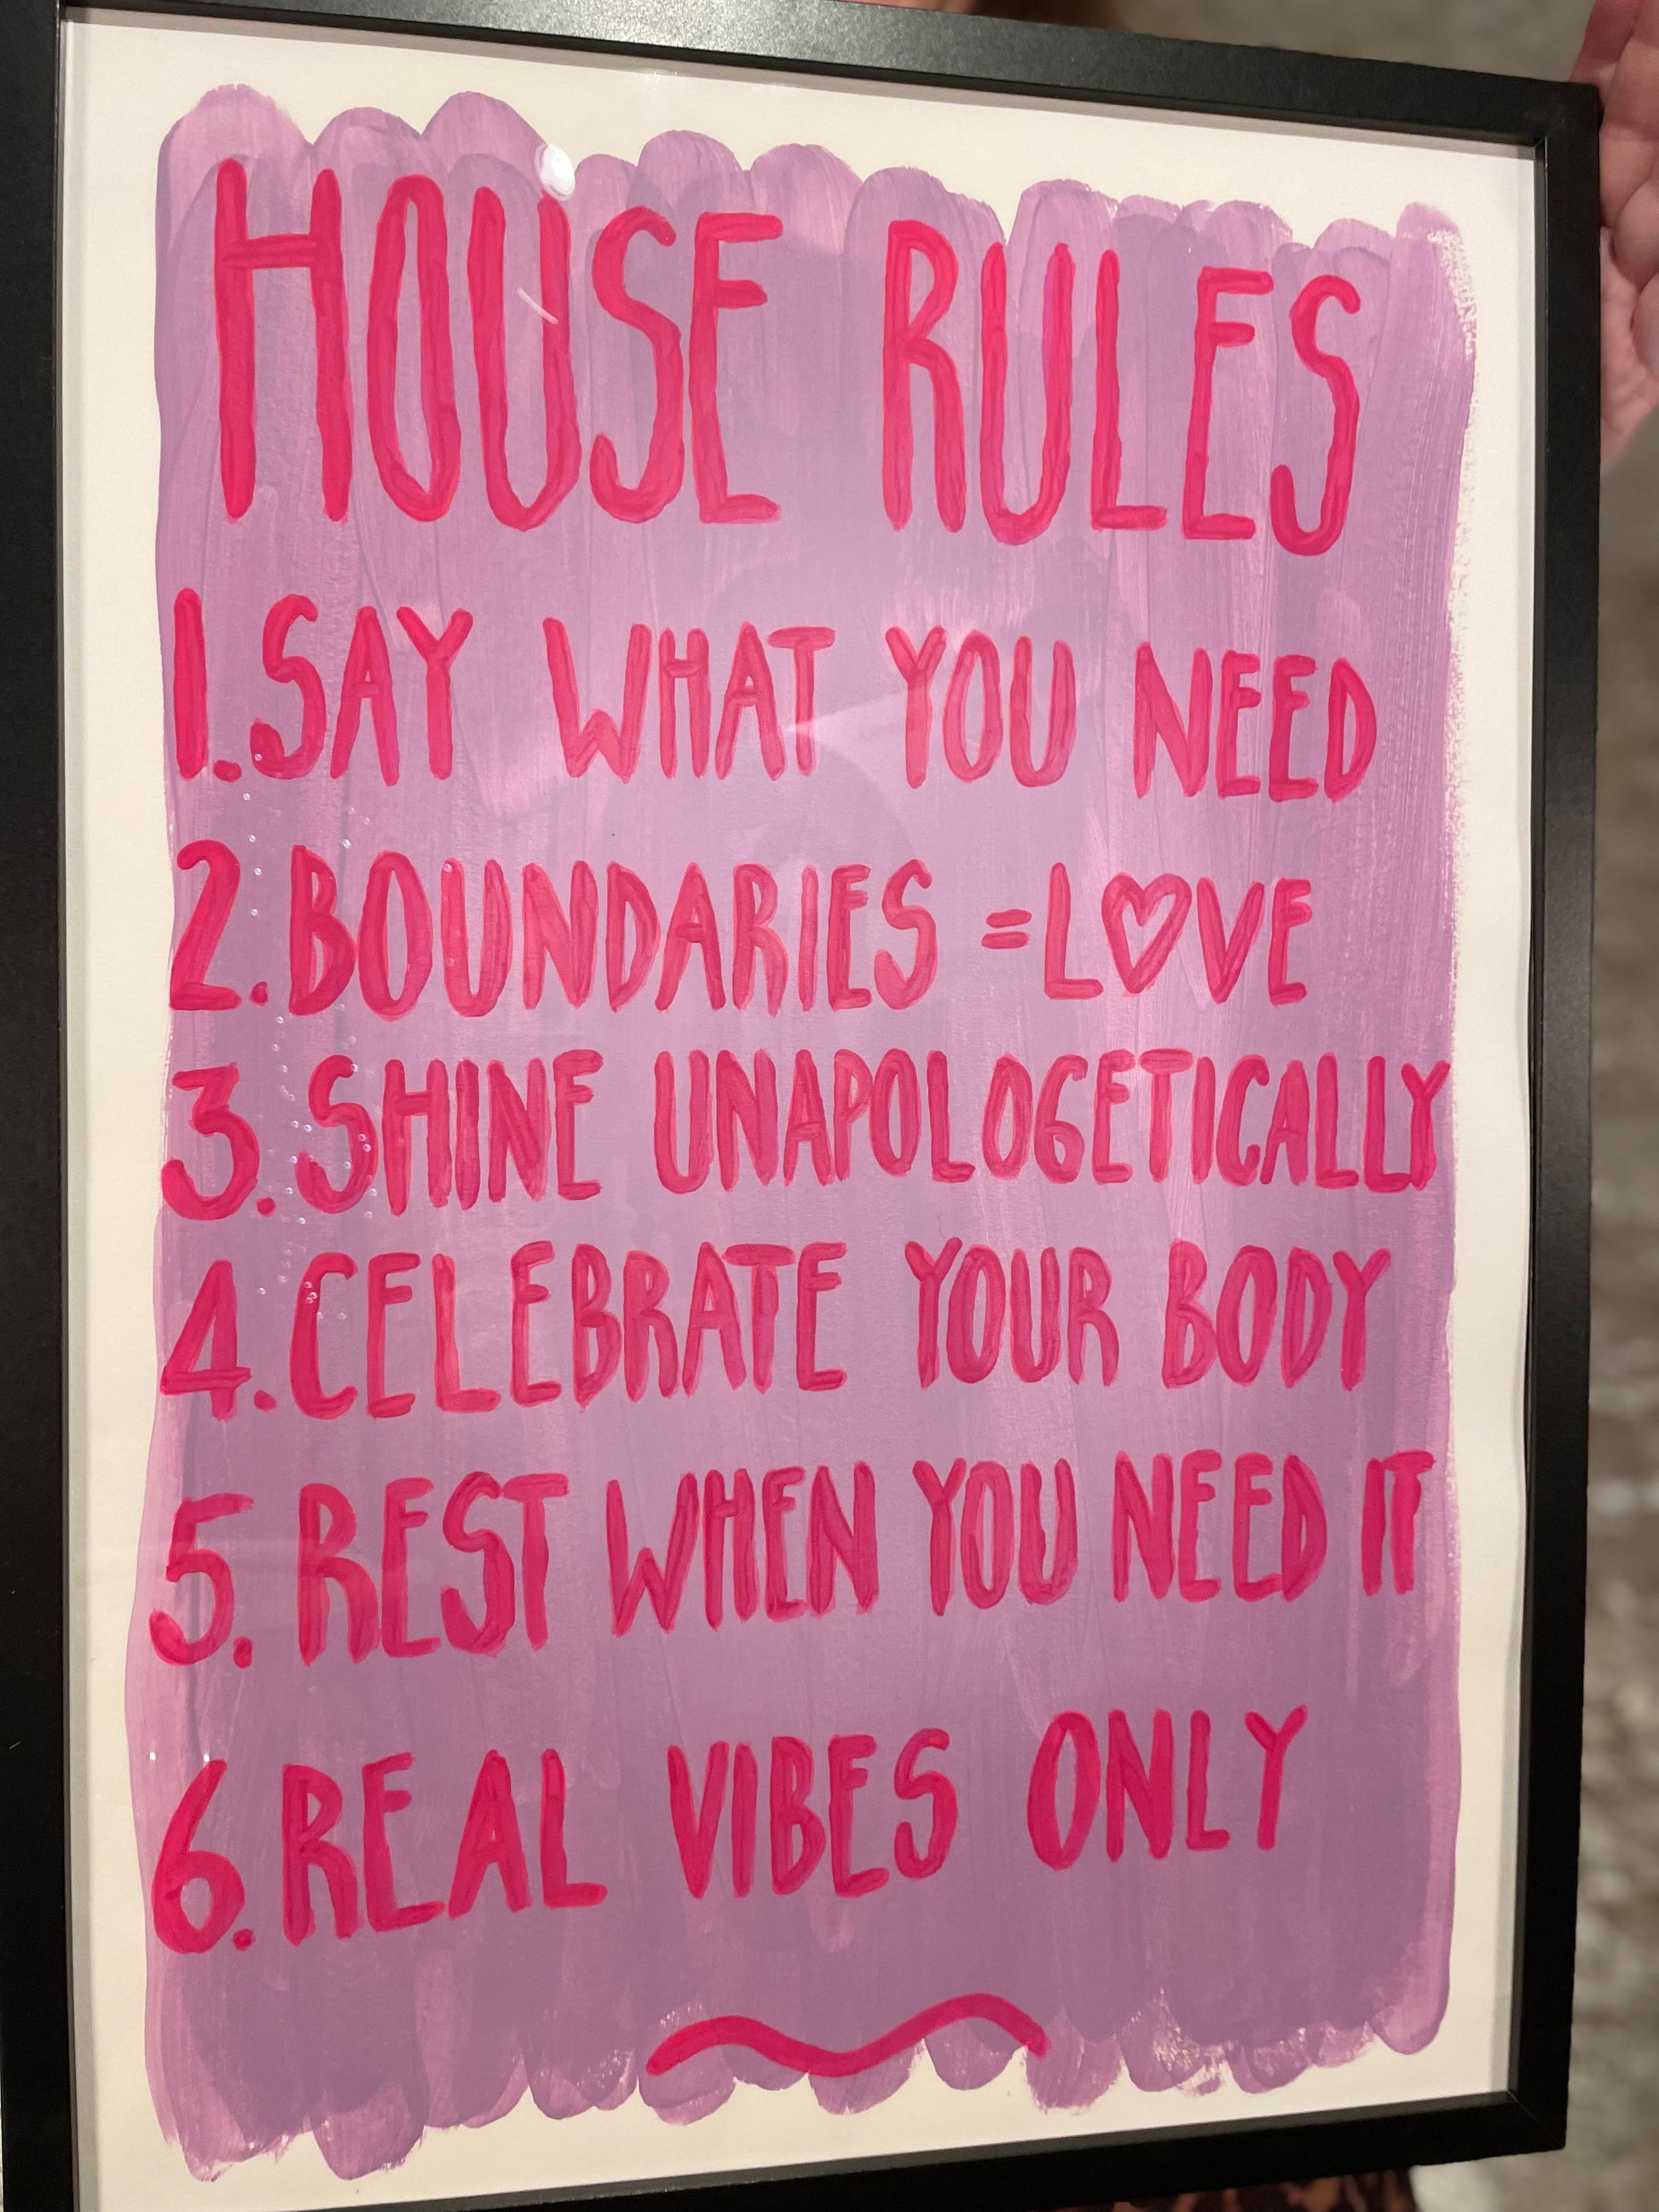 HOUSE RULES
1. SAY WHAT YOU NEED
2. BOUNDARIES = LOVE
3. SHINE UNAPOLOGETICALLY
4. CELEBRATE YOUR BODY
5. REST WHEN YOU NEED IT
6. REAL VIBES ONLY